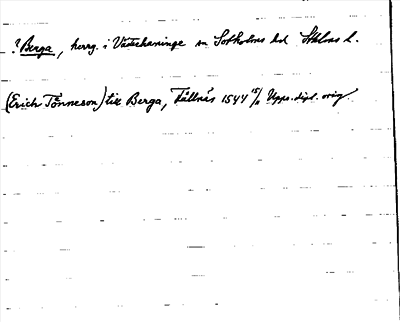 ? Berga, herrg. i Västerhaninge sn Sotholms hd Sthlms l.
(Erich Tönneson) till Berga, Fållnäs 1544 15/11 Upps. dipl. orig